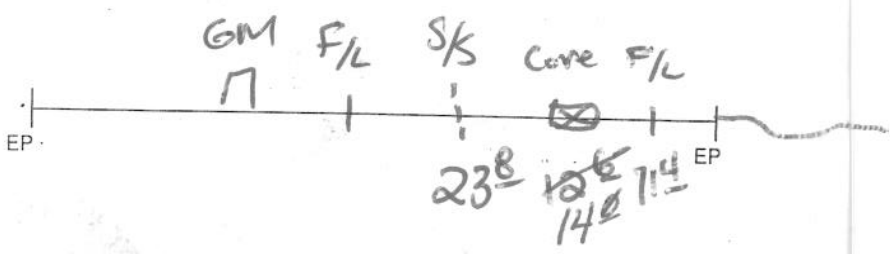 GM F/L S/S Core F/L
EP EP
23⁸ 12⁶ 11⁴
14⁰